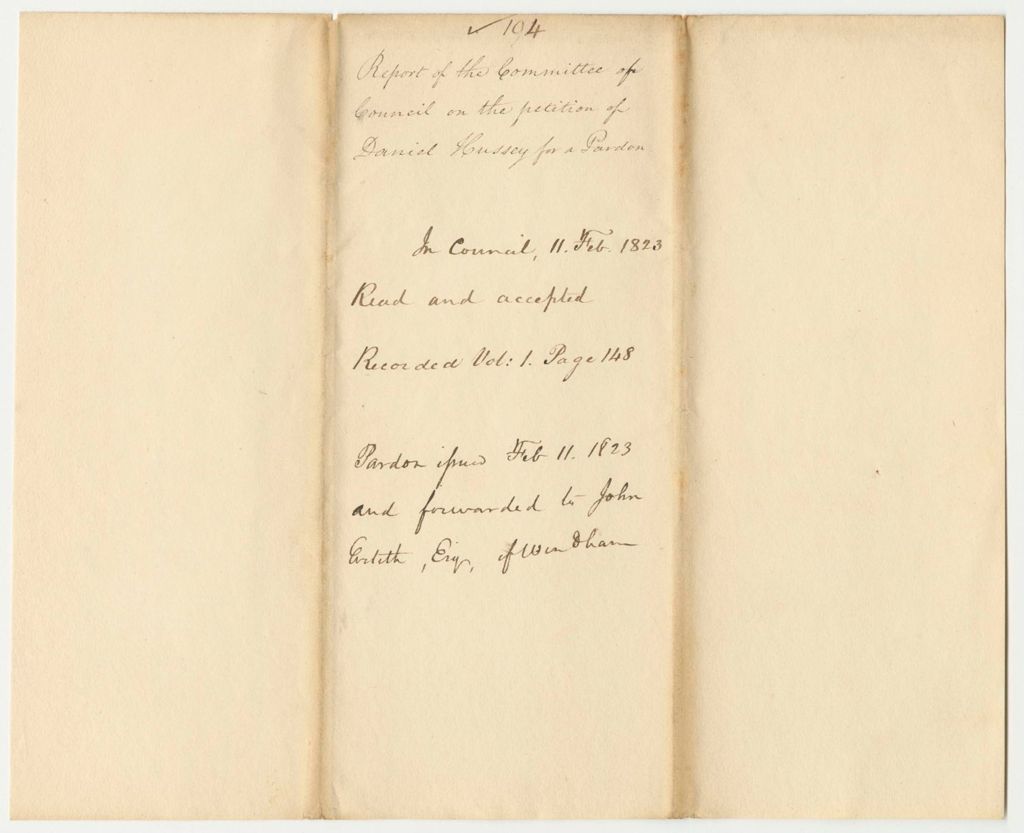 ✓ 194
Report of the Committee of
Council on the petition of
Daniel Hussey for a Pardon
In Council, 11. Feb. 1823
Read and accepted
Recorded Vol: 1. Page 148
Pardon issued Feb 11. 1823
and forwarded to John
Esq, of Windham